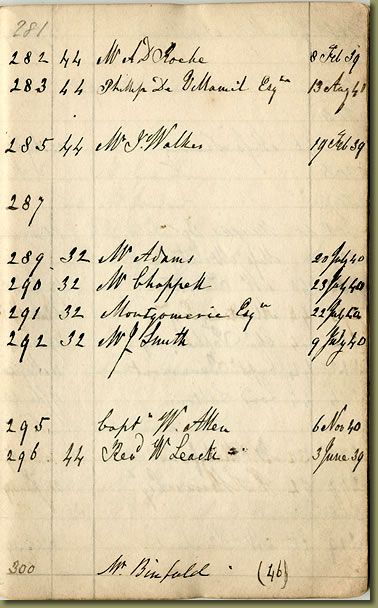 281
282 44 Mr A D Roche 8 Feb 39
283 44 Philip De Villamil Esqre 13 Aug 40
285 44 Mr J Walker 19 Feb 39
287
289 32 Mr Adams 20 July 40
290 32 Mr Choppett 23 July 40
291 32 Montgomerie Esqre 22 July 40
292 32 Mr J Smith 9 July 40
295 Captn W. Allen 6 Nov 40
296 44 Revd W Leach 3 June 39
300 Mr. Binfold (46)